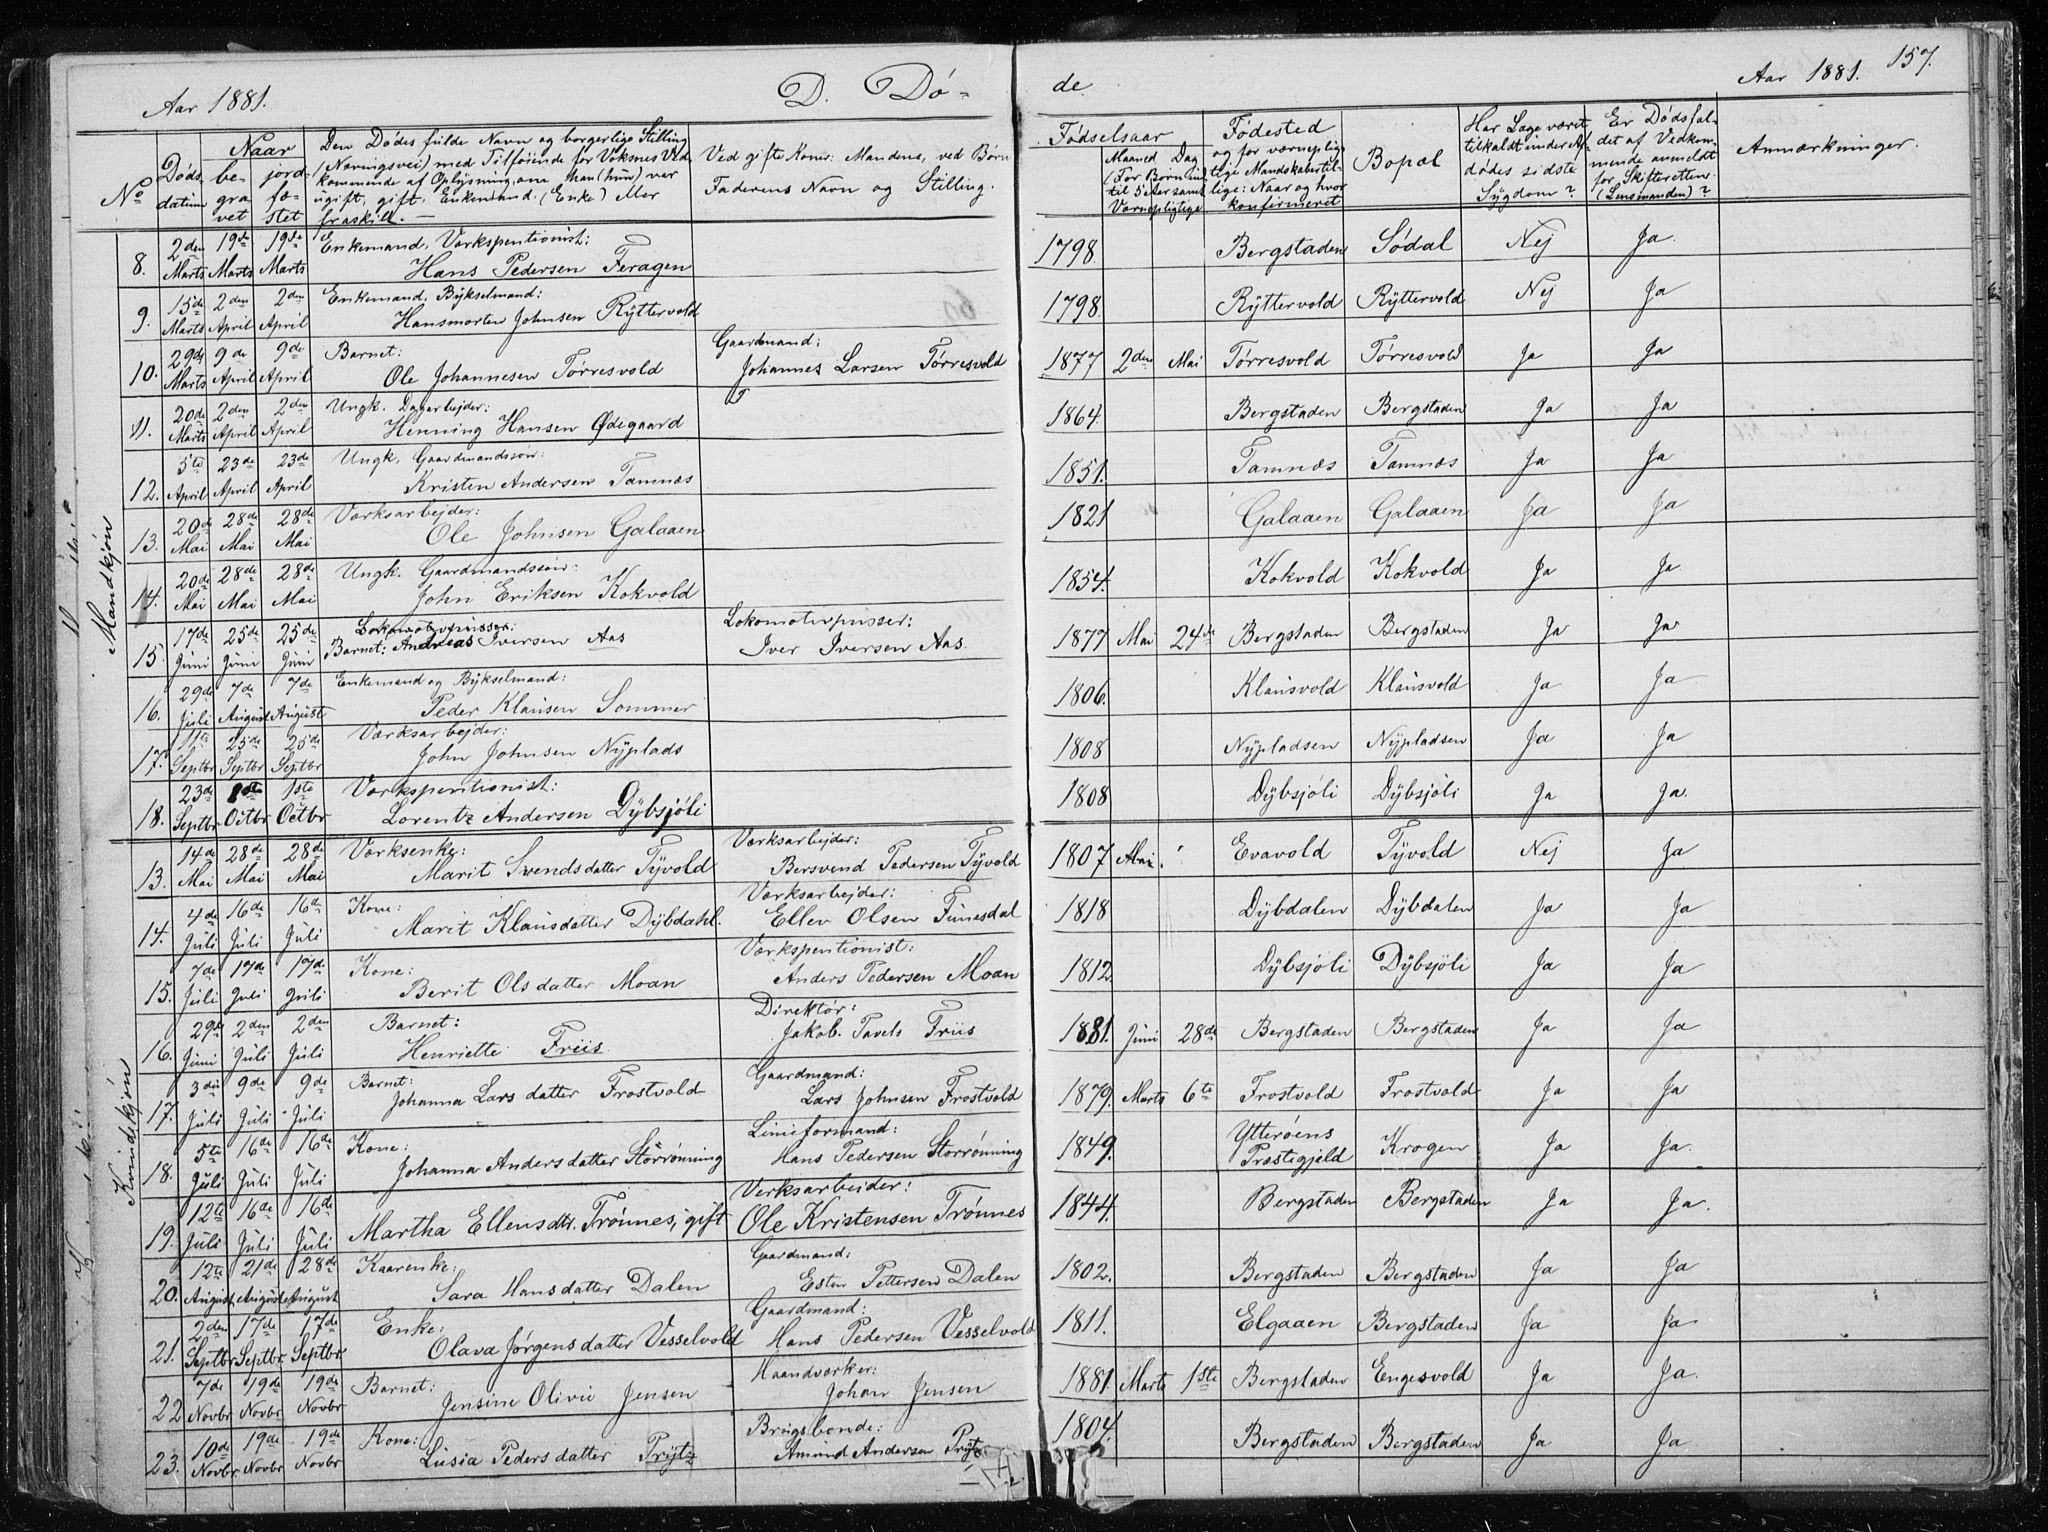 Aar 1881.
D. Dö-
de
Aar 1881.
157.
No
Döds-
datum
Naar
be-
gra-
vet
jord-
fæ-
stet
Den Dödes fulde Navn og borgerlige Stilling
(Næringsvei) med Tilföiende for Voksnes Ved-
kommende af Oplysning, om han (hun) var
ugift, gift, Enkemand (Enke) eller
fraskilt.
Ved gifte Koner: Mandens, ved Börn
Faderens Navn og Stilling.
Födselsaar
Maaned Dag
(For Börn ind-
til 5 Aar samt
Værnepligtige
Födested
og for værneplig-
tige Mandskaber til-
lige: Naar og hvor
konfirmeret
Bopæl
Har Læge været
tilkaldt under Af-
dödes sidste
Sygdom?
Er Dödsfal-
det af Vedkom-
mende anmeldt
for Skifteretten
(Lensmanden)?
Anmærkninger.
Mandkjön
8. 2den Marts 19de Marts 19de Marts Enkemand, Værkspentionist: Hans Pedersen Feragen 1798. Bergstaden Södal Nej Ja.
9. 15de Marts 2den April 2den April Enkemand, Bykselmand: Hansmorten Johnsen Ryttervold 1798. Ryttervold Ryttervold Nej Ja
10. 29de Marts 9de April 9de April Barnet: Ole Johannesen Törresvold Gaardmand: Johannes Larsen Törresvold 1877 2den Mai Törresvold Törresvold Ja Ja
11. 20de Marts 2den April 2den April Ungk. Dagarbejder: Henning Hansen Ödegaard 1864. Bergstaden Bergstaden Ja Ja
12. 5te April 23de April 23de April Ungk. Gaardmandssön: Kristen Andersen Tamnæs 1851. Tamnæs Tamnæs Ja Ja
13. 20de Mai 28de Mai 28de Mai Værksarbejder: Ole Johnsen Galaaen 1821 Galaaen Galaaen Ja Ja
14. 20de Mai 28de Mai 28de Mai Ungk. Gaardmandssön: John Eriksen Kokvold 1854. Kokvold Kokvold Ja Ja.
15. 17de Juni 25de Juni 25de Juni Lokomotivpusser: Barnet: Andreas Iversen Aas Lokomotivpusser: Iver Iversen Aas. 1877 Mai 24de Bergstaden Bergstaden Ja Ja
16. 29de Juli 7de August 7de August Enkemand og Bykselmand: Peder Klausen Sommer 1806. Klausvold Klausvold Ja Ja.
17. 11te Septbr 25de Septbr 25de Septbr Værksarbejder: John Johnsen Nyplads 1808 Nypladsen Nypladsen Ja Ja
18. 23de Septbr 1ste Octbr 1ste Octbr Værkspentionist: Lorentz Andersen Dybsjöli 1808 Dybsjöli Dybsjöli Ja Ja.
Kvindkjön
13. 14de Mai 28de Mai 28de Mai Værksenke: Marit Svendsdatter Tyvold Værksarbejder: Bersvend Pedersen Tyvold 1807 Mai. Evavold Tyvold Nej Ja
14. 4de Juli 16de Juli 16de Juli Kone: Marit Klausdatter Dybdahl. Værksarbejder: Ellev Olsen Funesdal 1818 Dybdalen Dybdalen Ja Ja
15. 7de Juli 17de Juli 17de Juli Kone: Berit Olsdatter Moan Værkspentionist: Anders Pedersen Moan 1812. Dybsjöli Dybsjöli Ja Ja
16. 29de Juni 2den Juli 2den Juli Barnet: Henriette Friis Direktör: Jakob Pavels Friis 1881. Juni 28de Bergstaden Bergstaden Ja Ja
17. 3die Juli 9de Juli 9de Juli Barnet: Johanna Larsdatter Frostvold Gaardmand: Lars Johnsen Frostvold 1879. Marts 6te Frostvold Frostvold Ja Ja
18. 5te Juli 16de Juli 16de Juli Kone: Johanna Andersdatter Storrönning Linieformand: Hans Pedersen Storrönning 1849. Ytteröens Præstegjeld Krogen Ja Ja.
19. 12te Juli 16de Juli 16de Juli Martha Ellensdtr. Trönnes, gift Verksarbeider: Ole Kristensen Trönnes 1844. Bergstaden Bergstaden Ja Ja.
20. 12te August 21de August 28de August Kaarenke: Sara Hansdatter Dalen Gaardmand: Esten Pettersen Dalen 1802. Bergstaden Bergstaden Ja Ja
21. 2den Septbr 17de Septbr. 17de Septbr. Enke: Olava Jörgensdatter Vesselvold Gaardmand: Hans Pedersen Vesselvold 1811. Elgaaen Bergstaden Ja Ja.
22 7de Novbr 19de Novbr 19de Novbr Barnet: Jensine Olivie Jensen Haandværker: Johan Jensen 1881. Marts 1ste Bergstaden Engesvold Ja Ja.
23. 10de Novbr 19de Novbr 19de Novbr Kone: Lusia Pedersdatter Prytz Brugsbonde: Amund Andersen Prytz 1804. Bergstaden Bergstaden Ja Ja